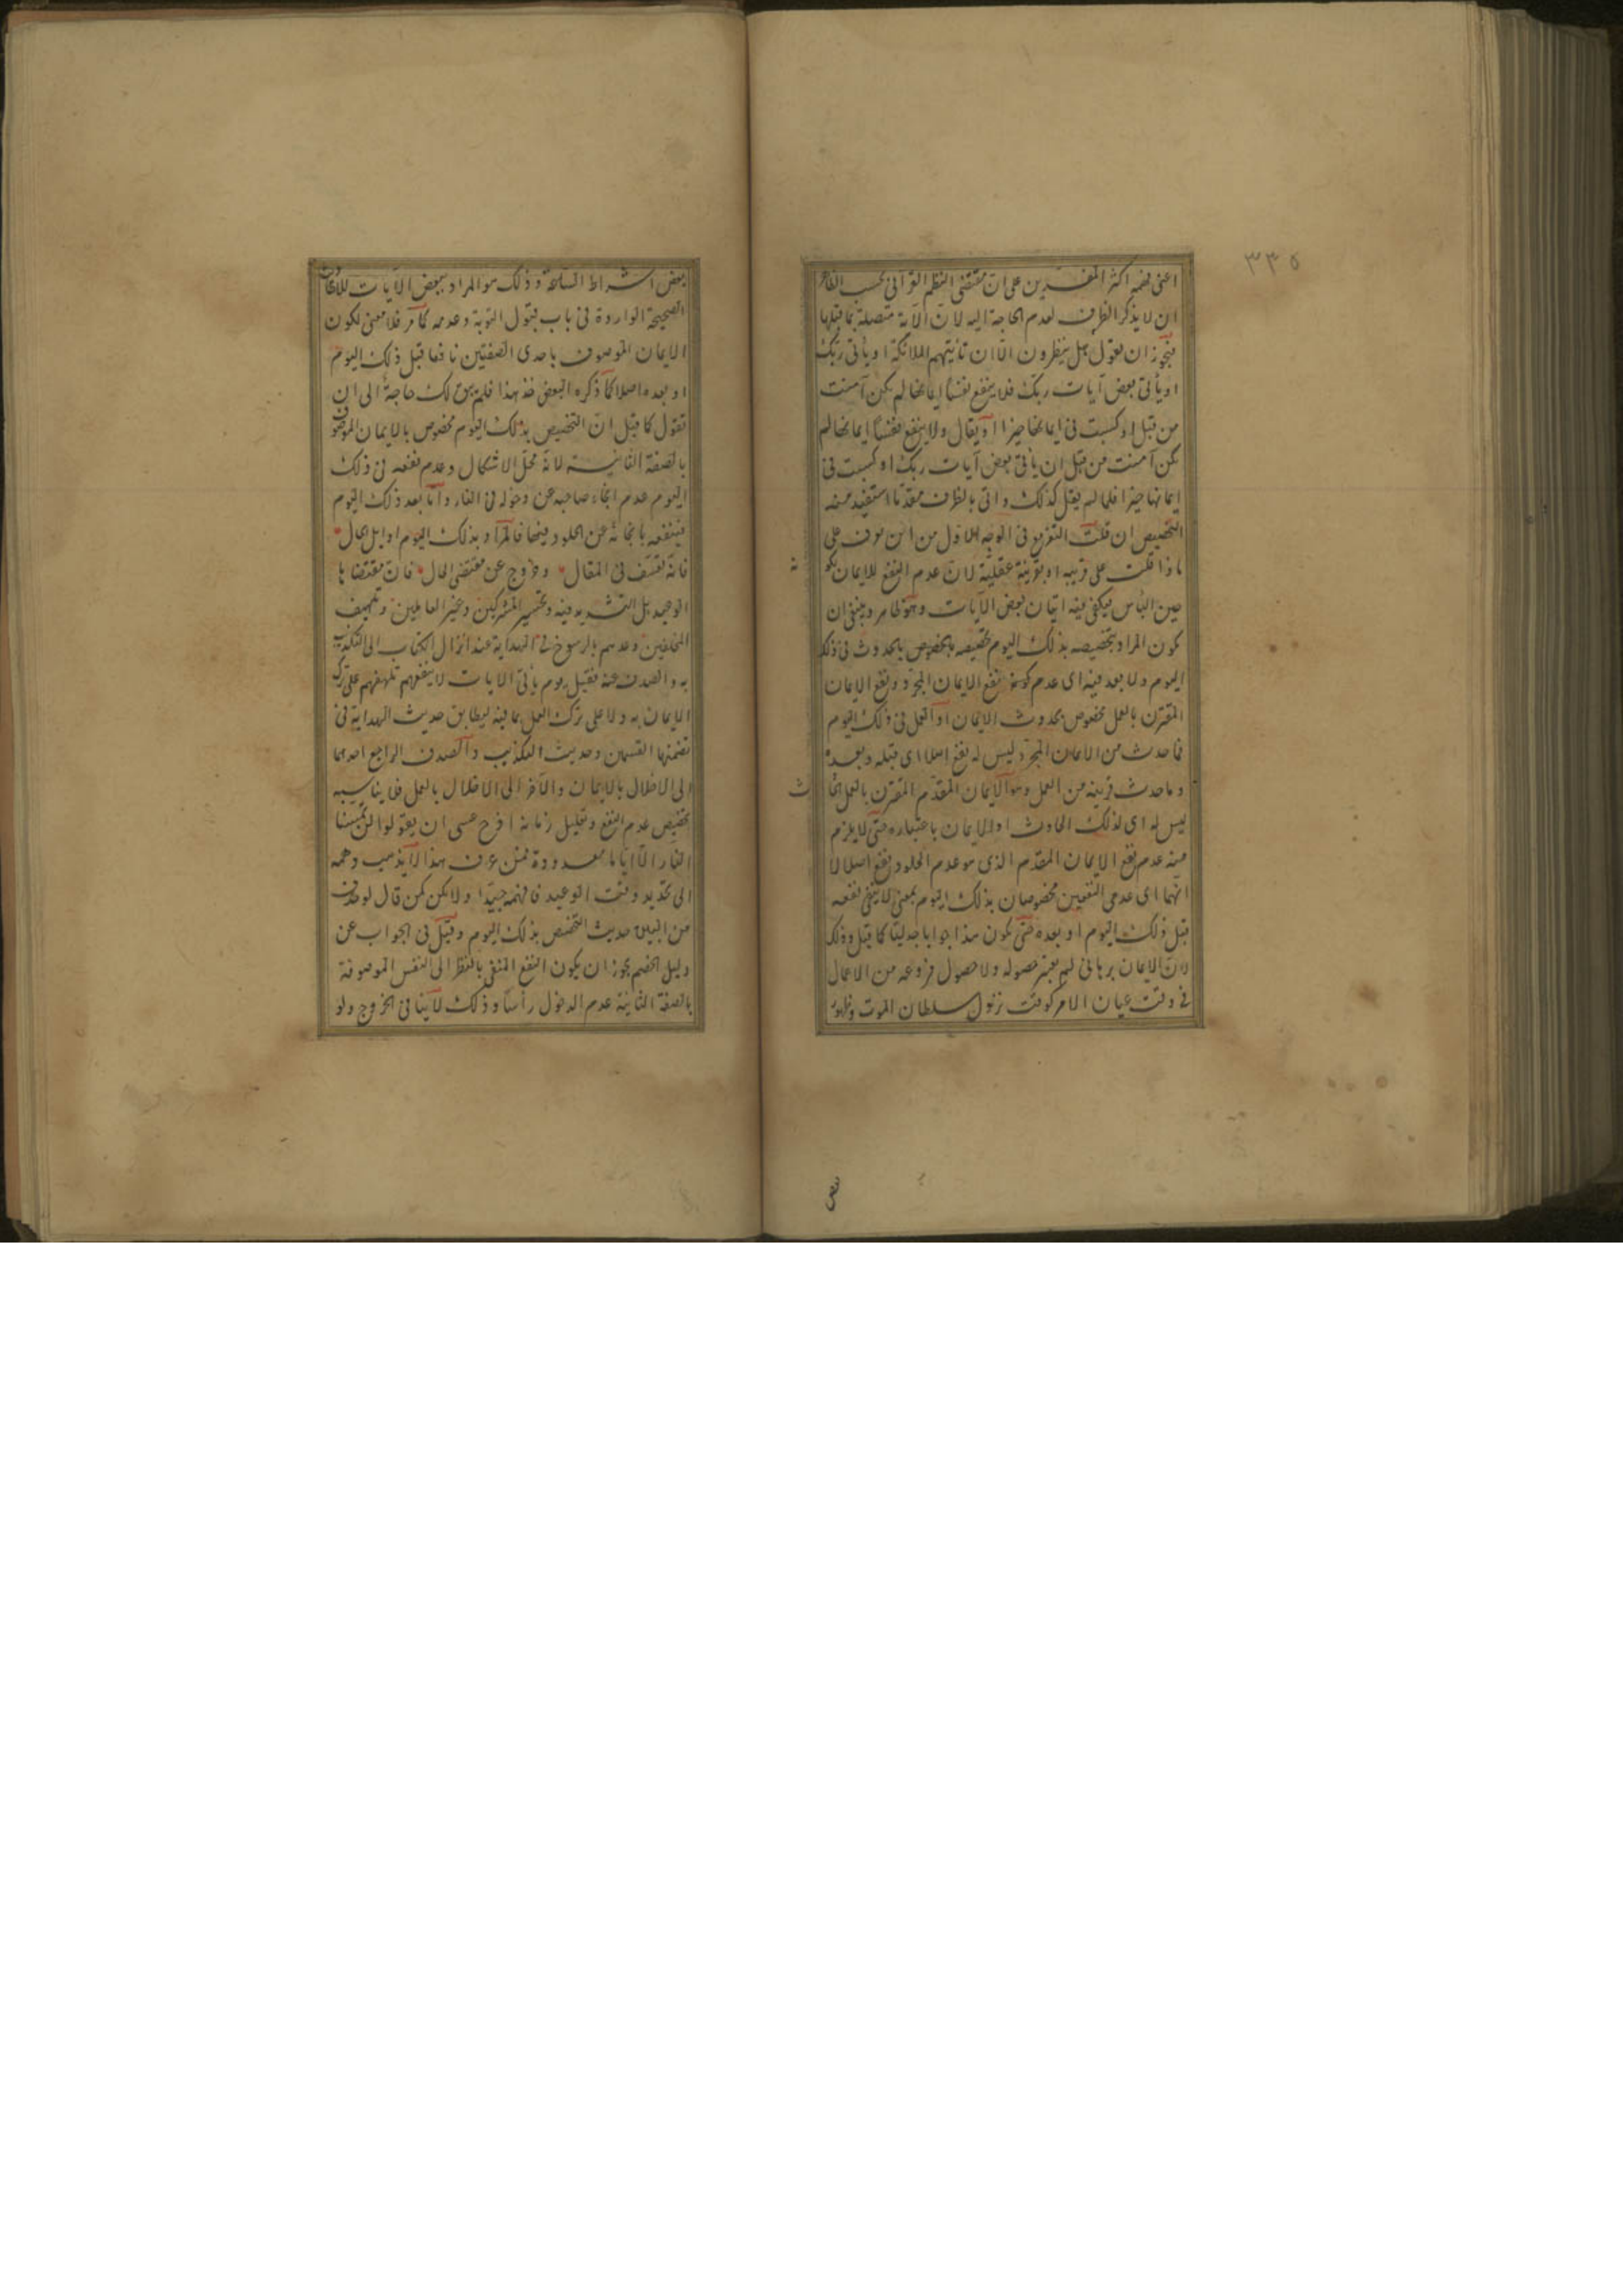 ٣٣٥
اعنى فهمه اكثر المفسرين على ان مقتضى النظم القرآنى بحسب الظاهر
ان لا يذكر الظرف لعدم الحاجة اليه لان الآية متصلة بما قبلها
فيجوز ان يقول هل ينظرون الا ان تأتيهم الملائكة او يأتى ربك
او يأتى بعض آيات ربك فلا ينفع نفسا ايمانها لم تكن آمنت
من قبل او كسبت فى ايمانها خيرا او يقال ولا ينفع نفسا ايمانها لم
تكن آمنت من قبل ان يأتى بعض آيات ربك او كسبت فى
ايمانها خيرا فلما لم يقل كذلك واتى بالظرف مقدما استفيد منه
التخصيص ان قلت التفريع فى الوجه الاول من اين عرف على
ماذا قلت على قريبه او بقرينة عقلية لان عدم النفع للايمان
حين البأس يكفى فيه اتيان بعض الآيات وهو ظاهر وينبغى ان
يكون المراد بتخصيصه بذلك اليوم تخصيصه بالحدوث فى ذلك
اليوم ولا بعد فيه اى عدم نفع الايمان المجرد ونفع الايمان
المقترن بالعمل مخصوص بحدوث الايمان او العمل فى ذلك اليوم
فما حدث من الايمان المجرد ليس له نفع اصلا اى قبله وبعده
وما حدث قرينه من العمل وهو الايمان المقدم المقترن بالعمل
ليس له اى لذلك الحادث او الايمان باعتباره حتى لا يلزم
منه عدم نفع الايمان المقدم الذى هو عدم الخلود نفع اصلا لا
انهما اى عدمى النفعين مخصوصان بذلك اليوم بمعنى لا ينفى نفعه
قبل ذلك اليوم او بعده حتى يكون هذا جوابا جدليا كما قيل وذلك
لان الايمان برهانى لم يعتبر حصوله ولا حصول فروعه من الاعمال
فى وقت عيان الامر كوقت نزول سلطان الموت وظهور
بعض
بعض اشراط الساعة وذلك هو المراد ببعض الآيات للاحاديث
الصحيحة الواردة فى باب قبول التوبة وعدمه كما مر فلا معنى لكون
الايمان الموصوف باحدى الصفتين نافعا قبل ذلك اليوم
او بعده اصلا كما ذكره البعض خذ هذا فلم يبق لك حاجة الى ان
تقول كما قيل ان التخصيص بذلك اليوم مخصوص بالايمان الموصوف
بالصفة الثانية لانه محل الاشكال وعدم نفعه فى ذلك
اليوم عدم انجاء صاحبه عن دخوله فى النار واما بعد ذلك اليوم
فينفعه بانجائه عن الخلود فيها فالمراد بذلك اليوم اوايل الحال
فانه تعسف فى المقال وخروج عن مقتضى الحال فان مقتضاها
الوعيد بل التشديد فيه وتحسير المشركين وغير العاملين وتلهيف
المخلفين وعدهم بالرسوخ فى الهداية عند انزال الكتاب الى التكذيب
به والصدف عنه فقيل يوم يأتى الآيات لا ينفعهم تلهفهم على ترك
الايمان به ولا على ترك العمل بما فيه ليطابق حديث الهداية فى
تضمنها القسمين وحديث التكذيب والصدف الراجع احدهما
الى الاخلال بالايمان والآخر الى الاخلال بالعمل فلا يناسبه
تخصيص عدم النفع وتقليل زمانه افرح عسى ان يقولوا لن تمسنا
النار الا اياما معدودة فمن عرف هذا لا يذهب وهمه
الى تحديد وقت الوعيد فافهمه جيدا ولا تكن كمن قال لو حذفت
من البين حديث التخصيص بذلك اليوم وقيل فى الجواب عن
دليل الخصم يجوز ان يكون النفع المنفى بالنظر الى النفس الموصوفة
بالصفة الثانية عدم الدخول رأسا وذلك لا ينافى الخروج ولو